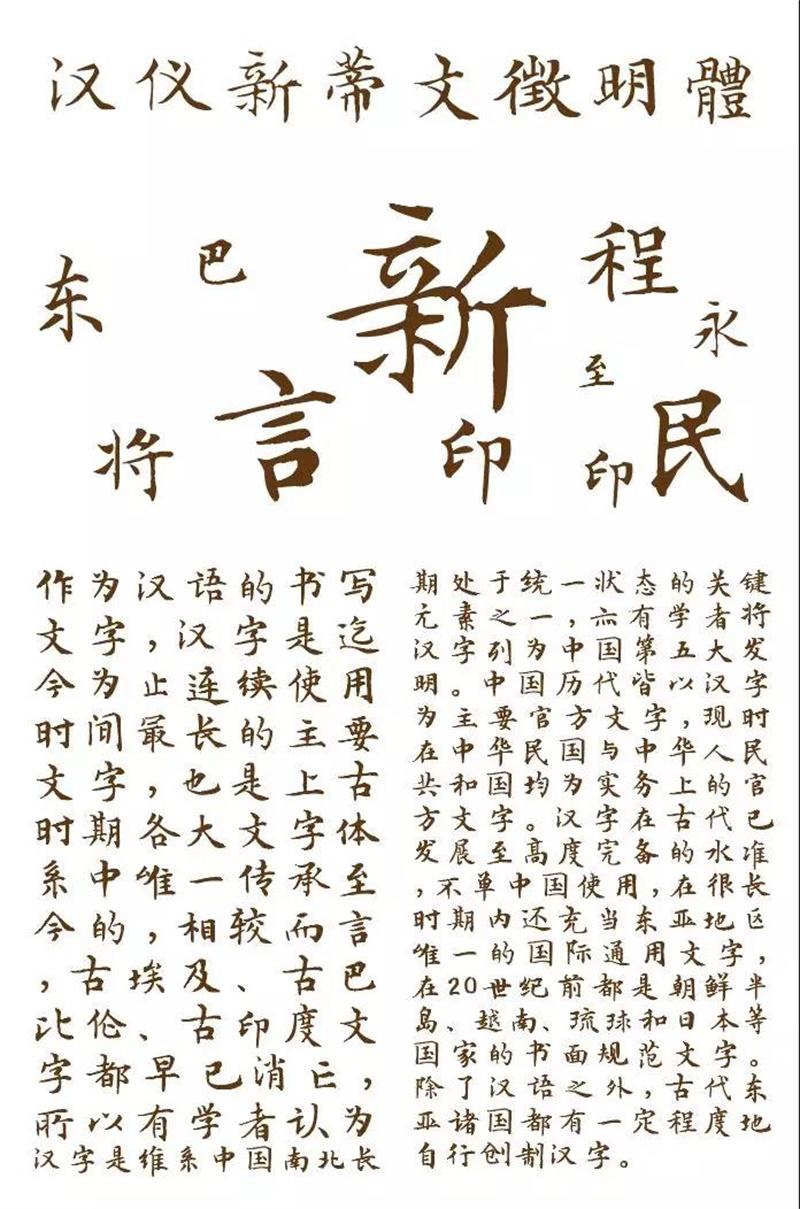 汉仪新蒂文徵明體
新
程
巴
东
永
至
言
民
将
印
印
作为汉语的书写
文字,汉字是迄
今为止连续使用
时间最长的主要
文字,也是上古
时期各大文字体
系中唯一传承至
今的,相较而言
,古埃及、古巴
比伦、古印度文
字都早已消亡,
所以有学者认为
汉字是维系中国南北长
期处于统一,状态的关键
元素之一,亦有学者将
汉字列为中国第五大发
明。中国历代皆以汉字
为主要官方文字,现时
在中华民国与中华人民
共和国均为实务上的官
方文字。汉字在古代已
发展至高度完备的水准
,不单中国使用,在很长
时期内还充当东亚地区
唯一的国际通用文字,
在20世纪前都是朝鲜半
岛、越南、琉球和日本等
国家的书面规范文字。
除了汉语之外,古代东
亚诸国都有一定程度地
自行创制汉字。